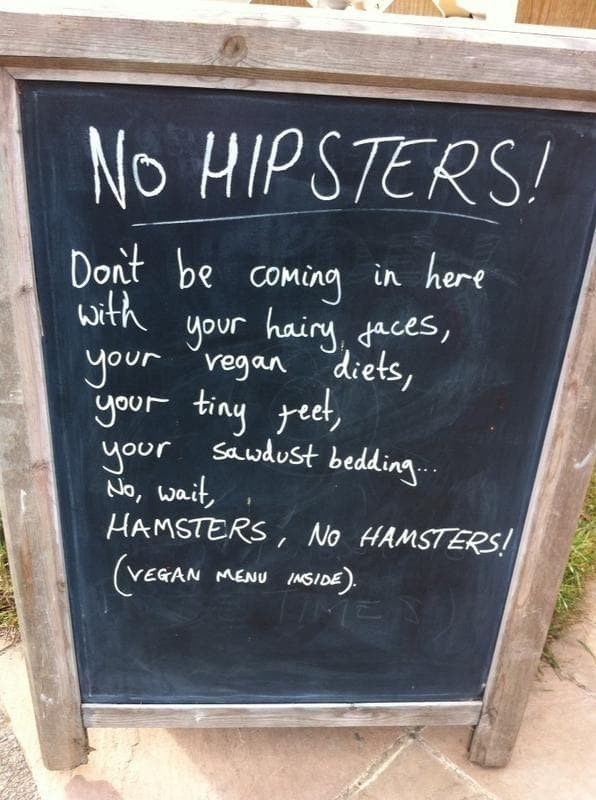 No HIPSTERS!
Don't be coming in here
with your hairy faces,
your vegan diets,
your tiny feet,
your sawdust bedding...
No, wait,
HAMSTERS, No HAMSTERS!
(VEGAN MENU INSIDE).